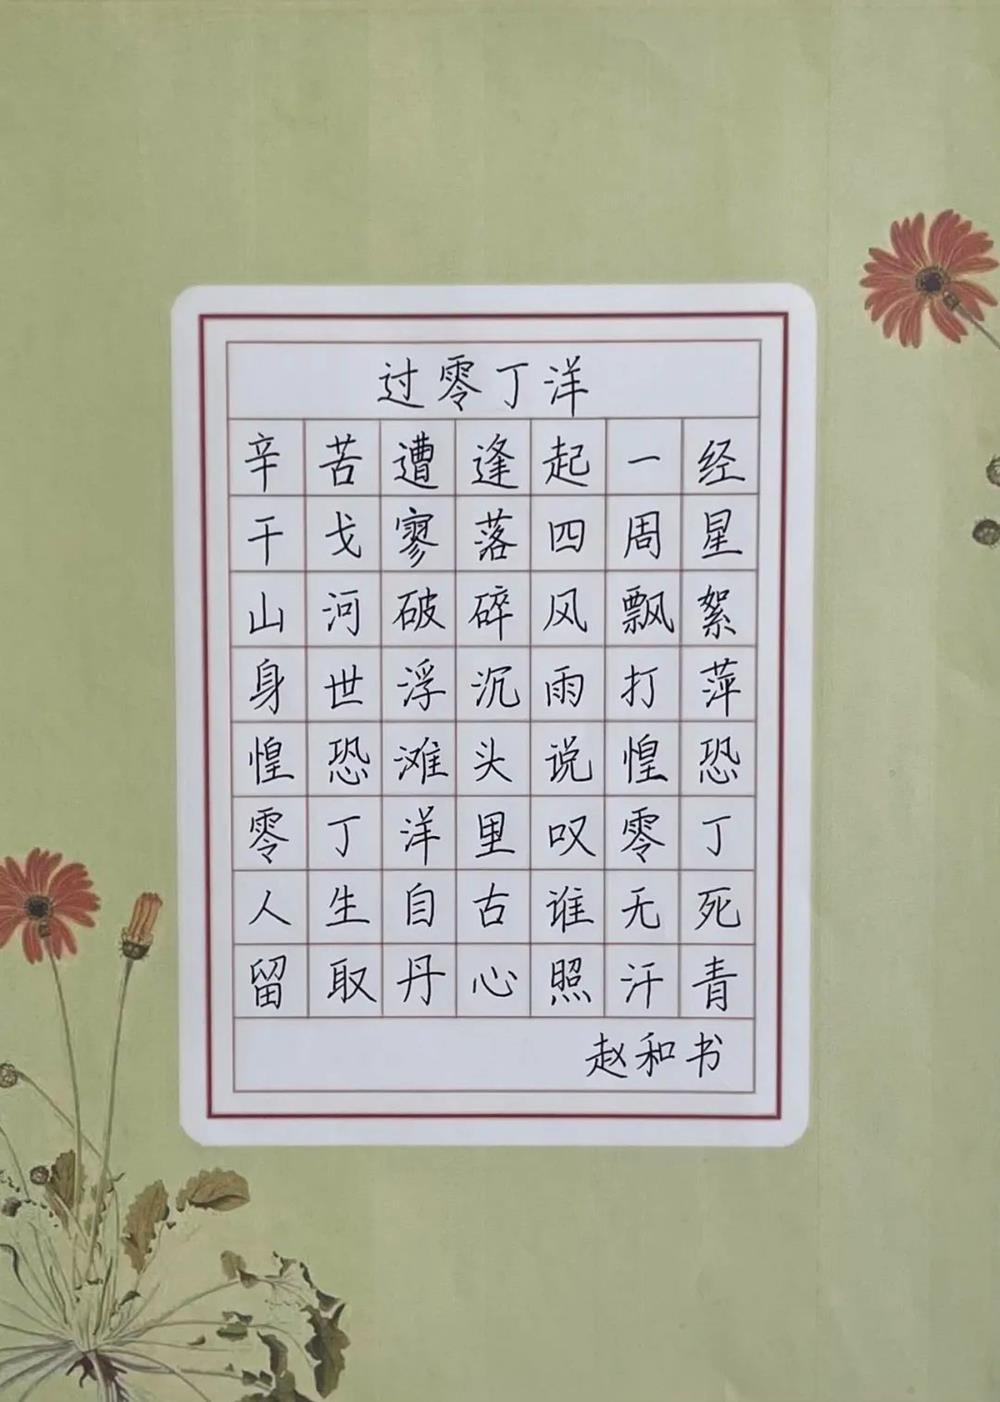 过零丁洋
辛苦遭逢起一经
干戈寥落四周星
山河破碎风飘絮
身世浮沉雨打萍
惶恐滩头说惶恐
零丁洋里叹零丁
人生自古谁无死
留取丹心照汗青
赵和书